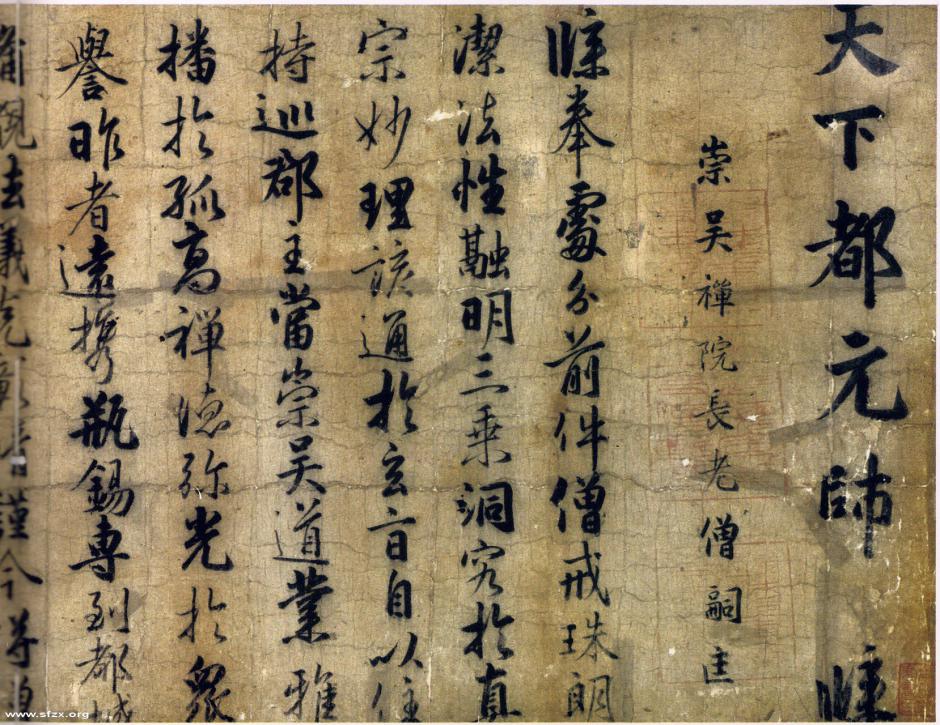 天下都元帥 牒
崇吳禪院長老僧嗣匡
牒奉處分前件僧戒珠朗
潔法性融明三乗洞究於真
宗妙理該通於玄旨自以住
持巡郡主當崇吳道業雅
播於孤高禪德弥光於衆
譽昨者遠携瓶錫專到都城
www.sfzx.org